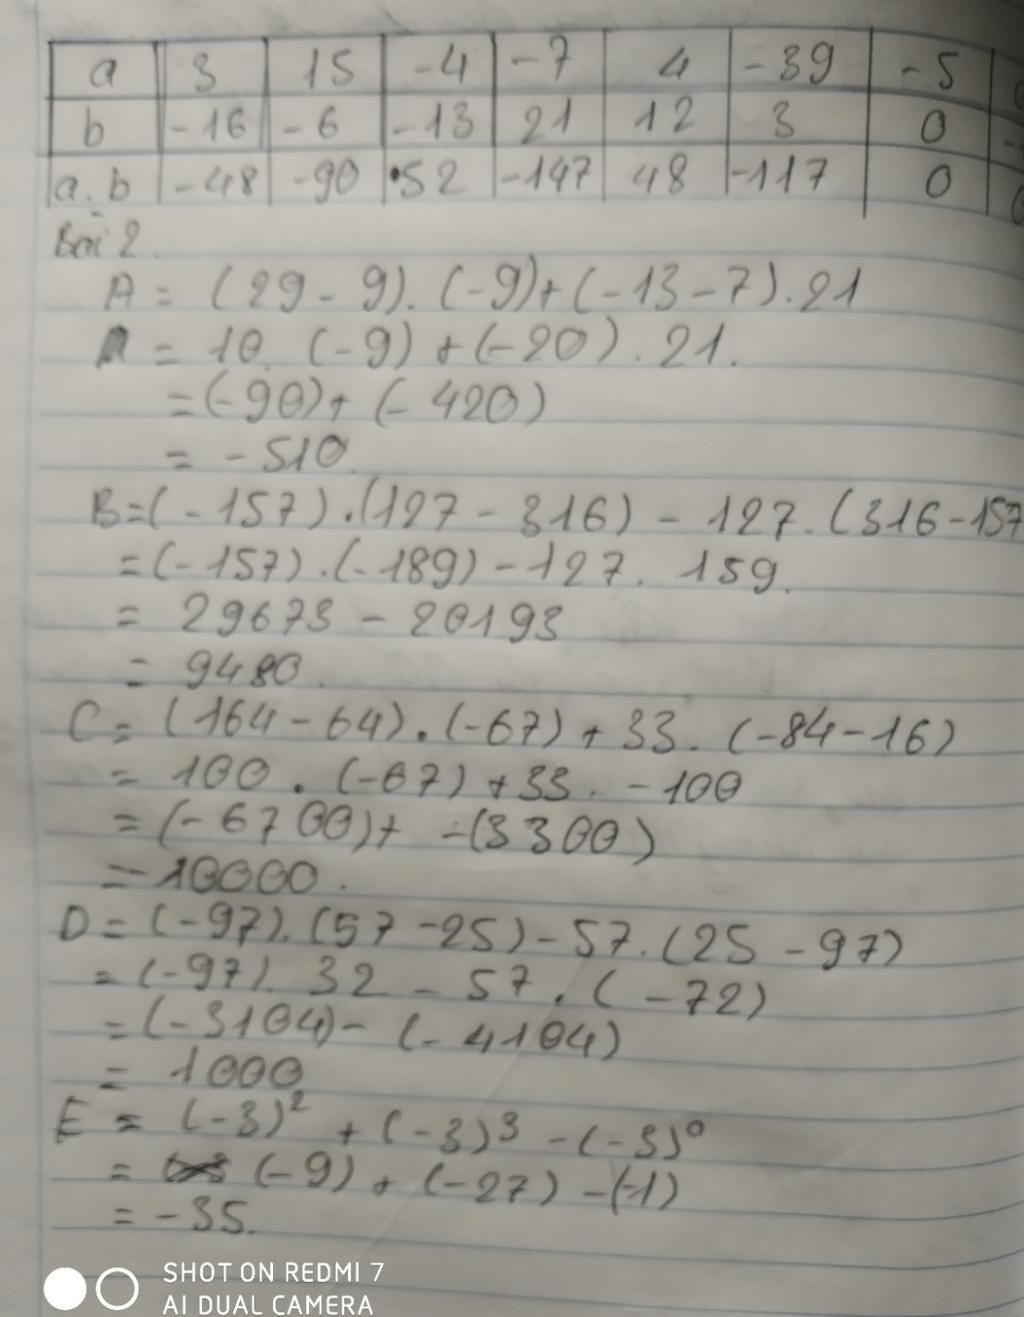 a 3 15 -4 -7 4 -39 -5
b -16 -6 -13 21 12 3 0
a.b -48 -90 52 -147 48 -117 0
Bài 2.
A = (29 - 9). (-9)+(-13-7).21
A = 10. (-9) + (-20). 21.
=(-90)+ (- 420)
= -510.
B=(-157).(127-316) - 127.(316-157
=(-157).(-189)-127. 159.
= 29673 - 20193
= 9480.
C= (164-64).(-67)+33.(-84-16)
= 100 . (-67)+33. -100
=(-6700)+ -(3300)
=-10000.
D=(-97).(57-25)-57.(25-97)
=(-97). 32 - 57.(-72)
=(-3104)- (-4104)
= 1000
E = (-3)² + (-3)³ -(-3)⁰
= (-9) + (-27) -(-1)
= -35.
SHOT ON REDMI 7
AI DUAL CAMERA